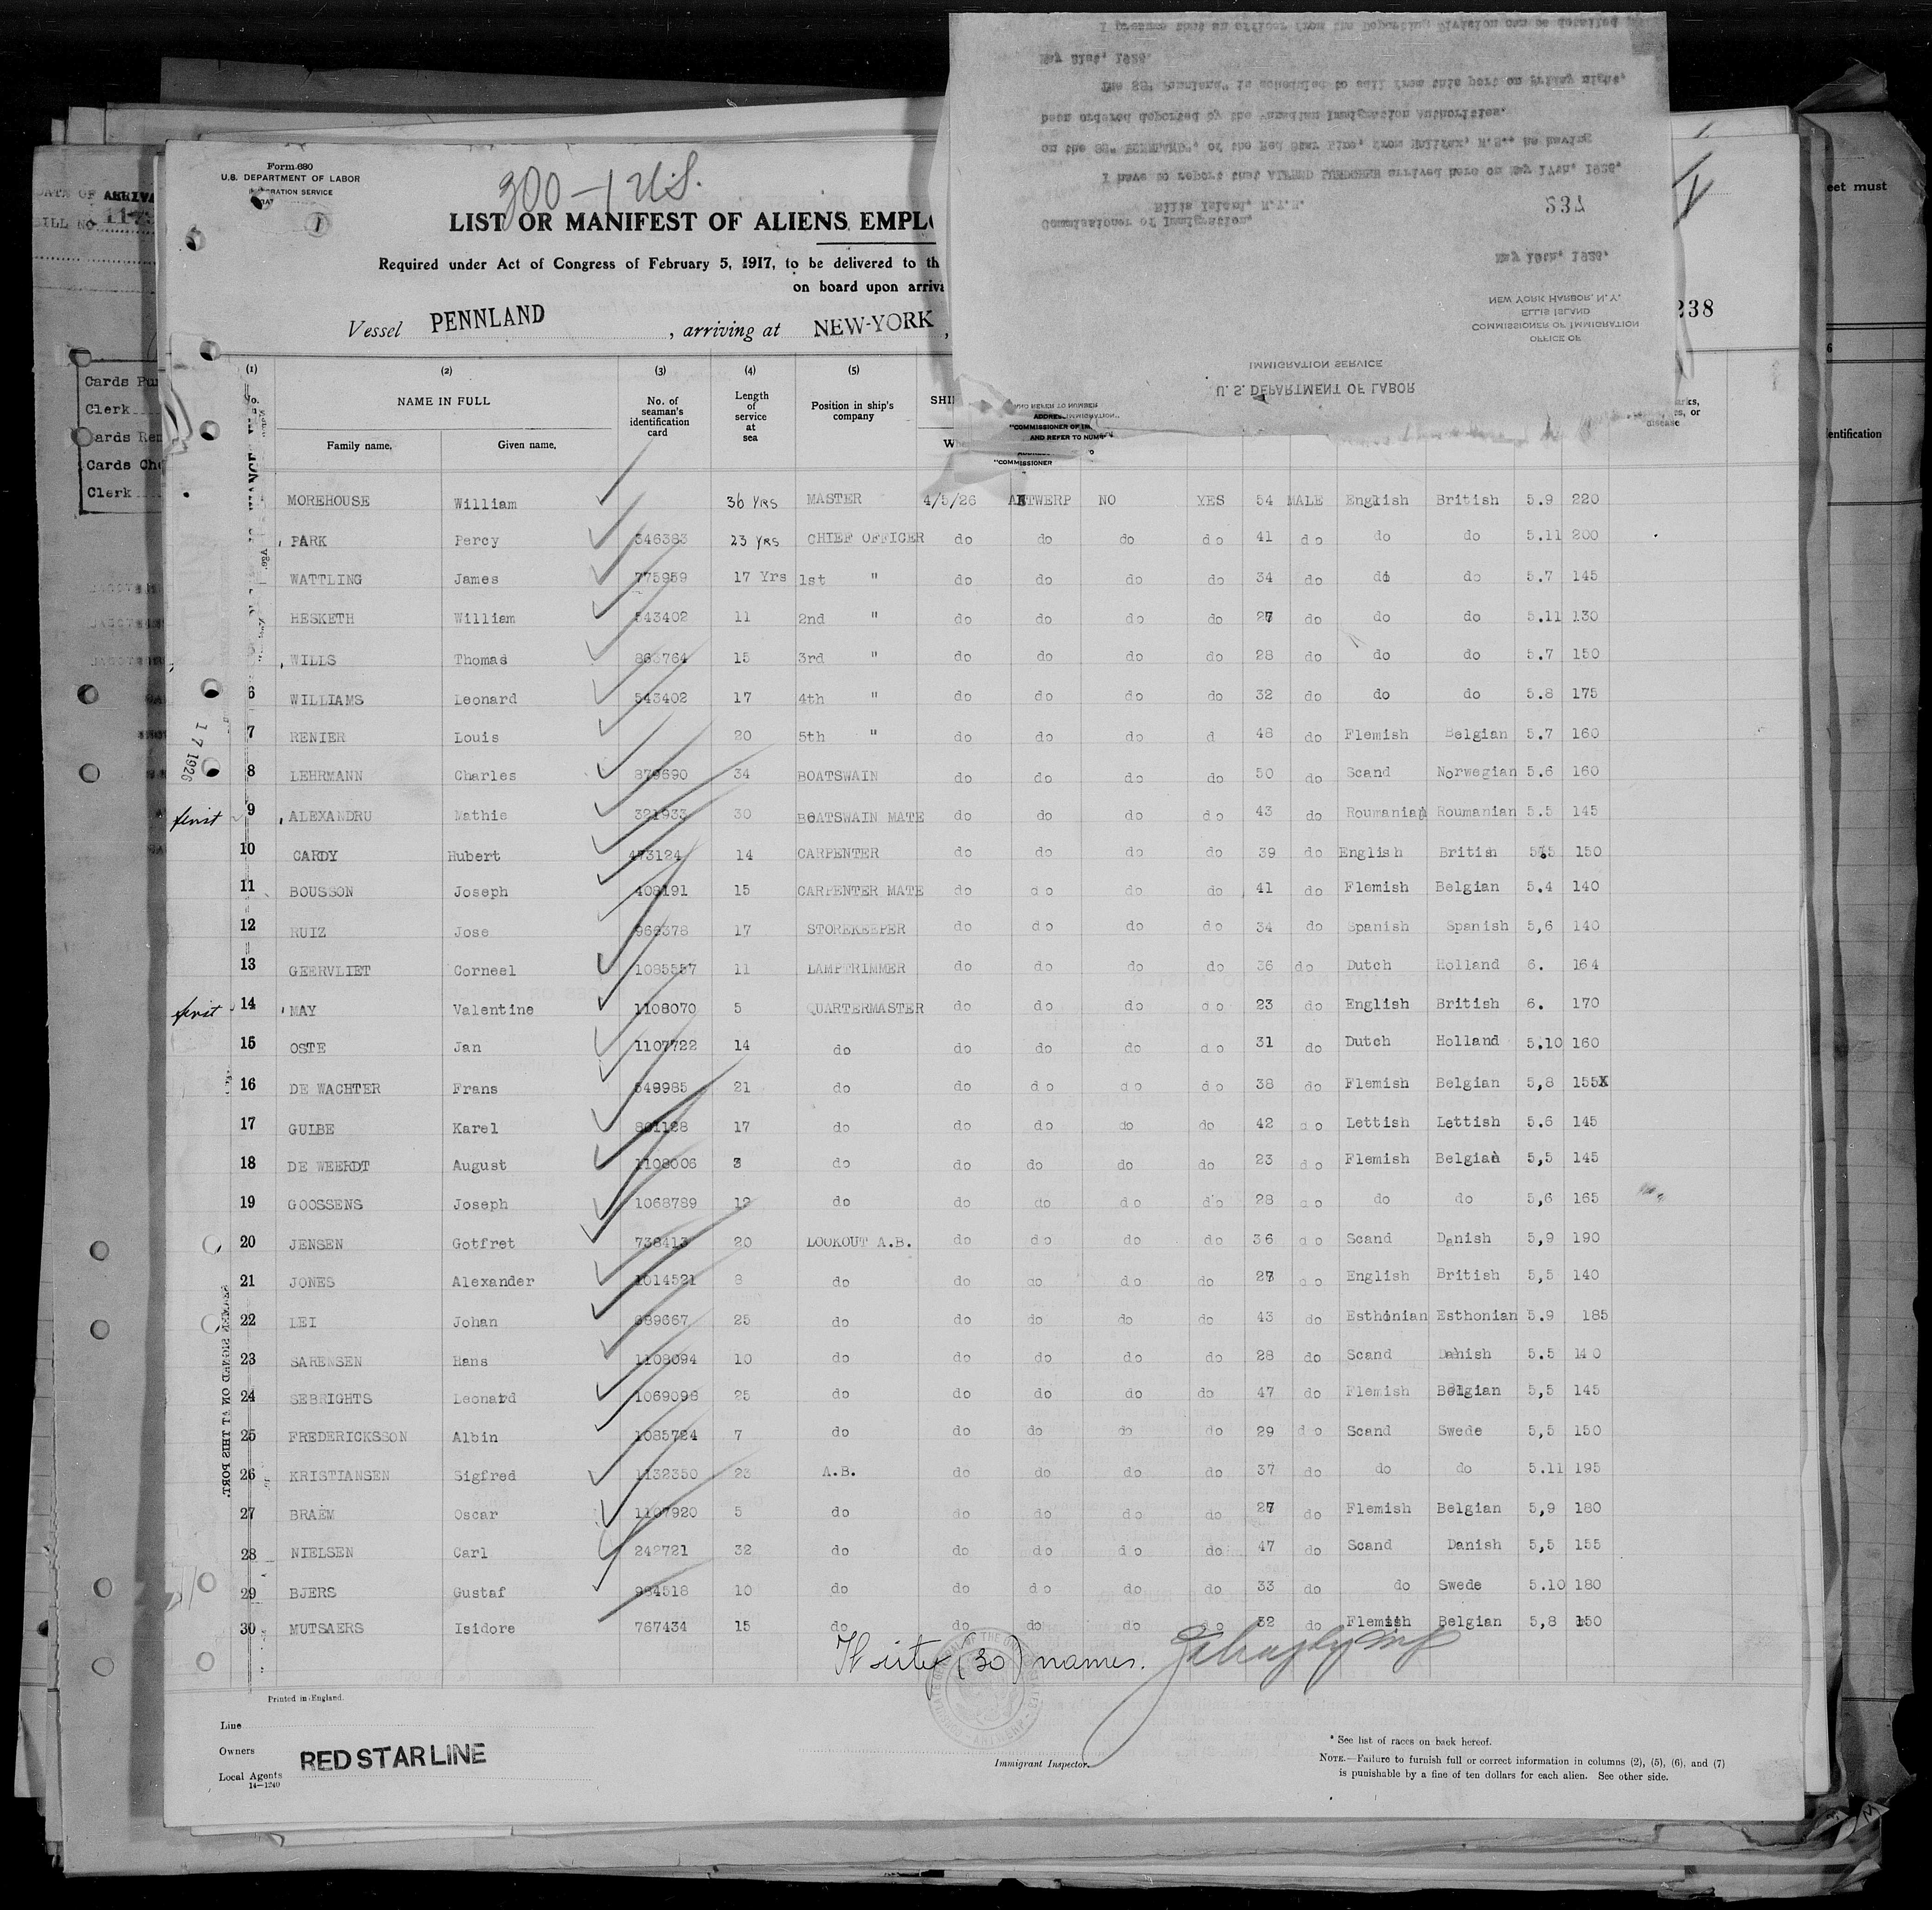 Form 680
U.S. DEPARTMENT OF LABOR
300 - 1 U.S.
LIST OR MANIFEST OF ALIENS
Required under Act of Congress of February 5, 1917, to be delivered to
on board upon
Vessel PENNLAND, arriving at NEW-YORK
238
(1) (2) (3) (4) (5)
NAME IN FULL No. of seaman's identification card Length of service at sea Position in ship's company
Family name, Given name,
MOREHOUSE William 36 YRS MASTER 4/5/26 ANTWERP NO YES 54 MALE English British 5.9 220
PARK Percy 346383 23 YRS CHIEF OFFICER do do do do 41 do do do 5.11 200
WATTLING James 775959 17 Yrs 1st " do do do do 34 do do do 5.7 145
HESKETH William 543402 11 2nd " do do do do 27 do do do 5.11 130
WILLS Thomas 15 3rd " do do do do 28 do do do 5.7 150
6 WILLIAMS Leonard 543402 17 4th " do do do do 32 do do do 5.8 175
7 RENIER Louis 20 5th " do do do d 48 do Flemish Belgian 5.7 160
8 LEHRMANN Charles 879690 34 BOATSWAIN do do do do 50 do Scand Norwegian 5.6 160
first 9 ALEXANDRU Mathie 321933 30 BOATSWAIN MATE do do do do 43 do Roumanian Roumanian 5.5 145
10 CARDY Hubert 473124 14 CARPENTER do do do do 39 do English British 150
11 BOUSSON Joseph 408191 15 CARPENTER MATE do do do do 41 do Flemish Belgian 5.4 140
12 RUIZ Jose 966378 17 STOREKEEPER do do do do 34 do Spanish Spanish 5,6 140
13 GEERVLIET Corneel 1085557 11 LAMPTRIMMER do do do do 36 do Dutch Holland 6. 164
first 14 MAY Valentine 1108070 5 QUARTERMASTER do do do do 23 do English British 6. 170
15 OSTE Jan 1107722 14 do do do do do 31 do Dutch Holland 5.10 160
16 DE WACHTER Frans 549985 21 do do do do do 38 do Flemish Belgian 5,8 155X
17 GULBE Karel 17 do do do do do 42 do Lettish Lettish 5.6 145
18 DE WEERDT August 1108006 3 do do do do do 23 do Flemish Belgian 5,5 145
19 GOOSSENS Joseph 1068789 12 do do do do do 28 do do do 5,6 165
20 JENSEN Gotfret 738413 20 LOOKOUT A.B. do do do do 36 do Scand Danish 5,9 190
21 JONES Alexander 1014521 8 do do do do do 27 do English British 5,5 140
22 LEI Johan 689667 25 do do do do do 43 do Esthonian Esthonian 5.9 185
23 SARENSEN Hans 1108094 10 do do do do do 28 do Scand Danish 5.5 140
24 SEBRIGHTS Leonard 1069098 25 do do do do do 47 do Flemish Belgian 5,5 145
25 FREDERICKSSON Albin 1085724 7 do do do do do 29 do Scand Swede 5,5 150
26 KRISTIANSEN Sigfred 1132350 23 A.B. do do do do 37 do do do 5.11 195
27 BRAEM Oscar 1107920 5 do do do do do 27 do Flemish Belgian 5,9 180
28 NIELSEN Carl 242721 32 do do do do do 47 do Scand Danish 5,5 155
29 BJERS Gustaf 984518 10 do do do do do 33 do do Swede 5.10 180
30 MUTSAERS Isidore 767434 15 do do do do do 32 do Flemish Belgian 5,8 150
(30) names.
Printed in England.
Line
Owners RED STAR LINE
Local Agents
14-1240
Immigrant Inspector.
* See list of races on back hereof.
NOTE.—Failure to furnish full or correct information in columns (2), (5), (6), and (7)
is punishable by a fine of ten dollars for each alien. See other side.
U. S. DEPARTMENT OF LABOR
IMMIGRATION SERVICE
OFFICE OF
COMMISSIONER OF IMMIGRATION
ELLIS ISLAND
NEW YORK HARBOR, N.Y.
237
Commissioner of Immigration,
Ellis Island, N.Y.H.
I have to report that arrived here on May 17th, 1926,
on the SS" PENNLAND", of the Red Star Line, from Halifax, N.S., he having
been ordered deported by the Canadian Immigration Authorities.
The SS" Pennland" is scheduled to sail from this port on Friday night,
May 21st, 1926.
I presume that an officer from the Deporting Division can be detailed
SEAMEN SIGNED ON AT THIS PORT.
17 1926
Cards
Clerk
Cards
Cards
Clerk
eet must